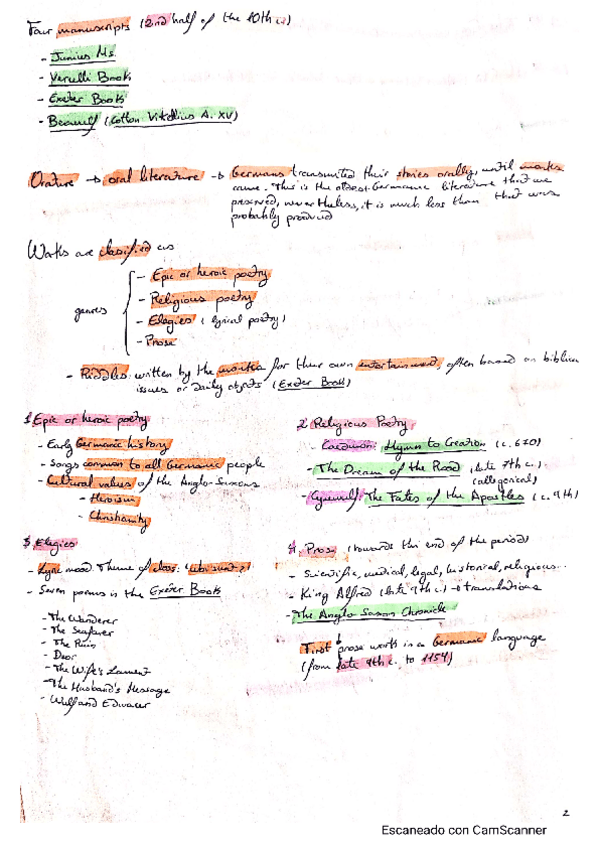 Four manuscripts (2nd half of the 10th c.)
- Junius Ms.
- Vercelli Book
- Exeter Book
- Beowulf (Cotton Vitellius A. XV)
Orature → oral literature → Germans transmitted their stories orally, until monks
came. "This is the oldest Germanic literature that we
preserved, nevertheless, it is much less than that was
probably produced
Works are classified as
genres
- Epic or heroic poetry
- Religious poetry
- Elegies (lyrical poetry)
- Prose
- Riddles: written by the monks for their own entertainment, often based on biblical
issues or daily objects (Exeter Book)
1. Epic or heroic poetry
- Early Germanic history
- Songs common to all Germanic people
- Cultural values of the Anglo-Saxons
- Heroism
- Christianity
2. Religious Poetry
- Caedmon: Hymn to Creation (c. 670)
- The Dream of the Rood (late 7th c.)
(allegorical)
- Cynewulf: The Fates of the Apostles (c. 9th)
3. Elegies
- Lyric mood Theme of loss: (ubi sunt?)
- Seven poems in the Exeter Book
- The Wanderer
- The Seafarer
- The Ruin
- Deor
- The Wife's Lament
- The Husband's Message
- Wulf and Edwacer
4. Prose (towards the end of the period)
- Scientific, medical, legal, historical, religious...
- King Alfred (late 9th c.) → translations
- The Anglo Saxon Chronicle
First prose works in a Germanic language
(from late 9th c. to 1154)
2
Escaneado con CamScanner